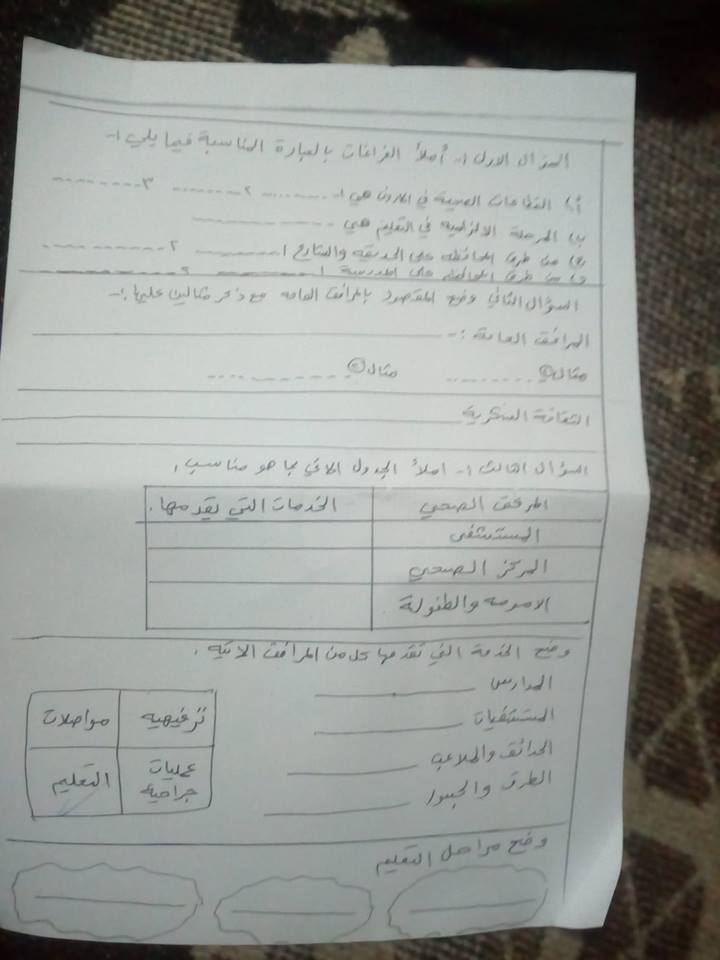 السؤال الاول :- أملأ الفراغات بالعبارة المناسبة فيما يلي :-
أ) القطاعات الصحية في الاردن هي ١- ......... ٢ ......... ٣ .........
ب) المرحلة الالزامية في التعليم هي .........
ج) من طرق المحافظه على الحديقه والشارع ١ ......... ٢ .........
د) من طرق المحافظه على المدرسة ١ ......... ٢ .........
السؤال الثاني وضح المقصود بالمرافق العامه مع ذكر مثالين عليها :-
المرافق العامة :- ـــــــــــــــ
مثال① ......... مثال② .........
الثقافة السكرية ـــــــــــــــ
السؤال الثالث :- املأ الجدول الاتي بما هو مناسب :
المرفق الصحي الخدمات التي يقدمها .
المستشفى
المركز الصحي
الامومه والطفولة
وضح الخدمة التي تقدمها كل من المرافق الاتيه .
المدارس ـــــــــــــــ
المستشفيات ـــــــــــــــ
الحدائق والملاعب ـــــــــــــــ
الطرق والجسور ـــــــــــــــ
ترفيهيه مواصلات
عمليات جراحية التعليم
وضح مراحل التعليم